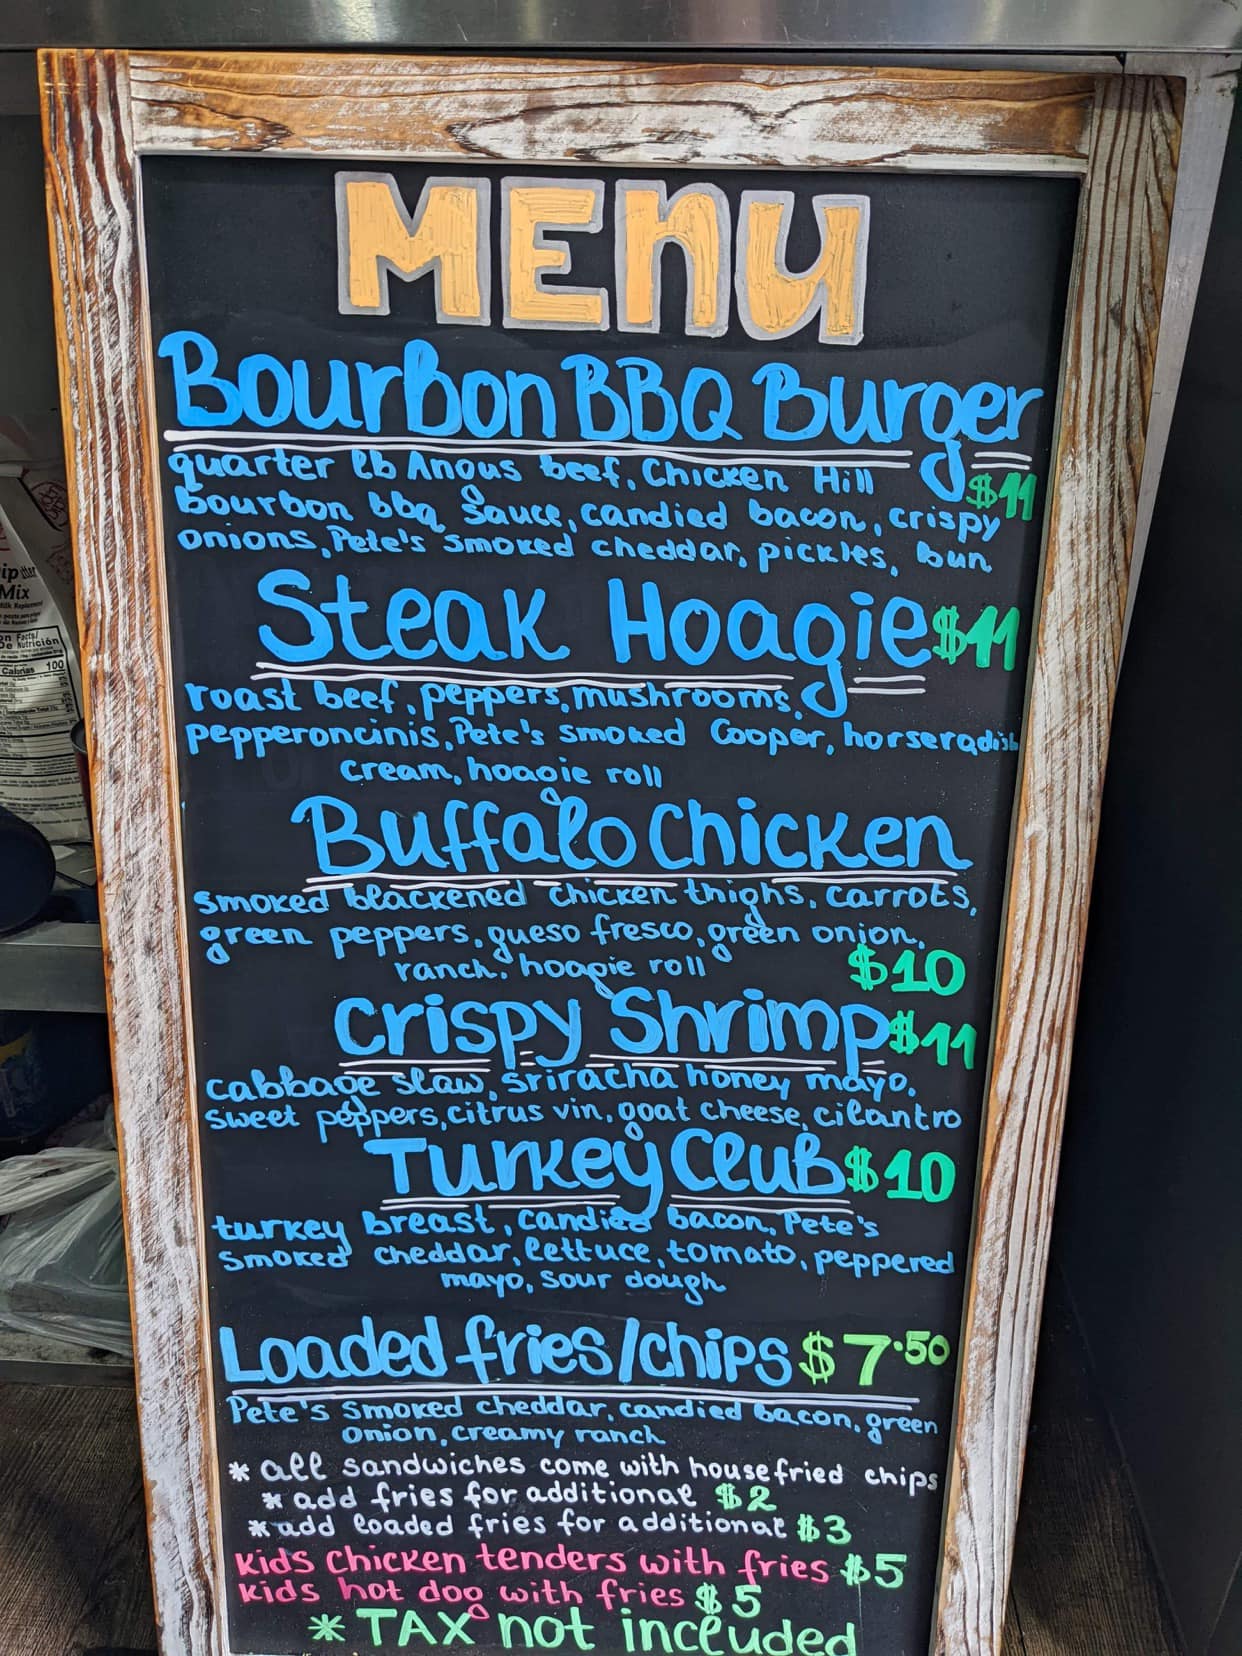 MENU
Bourbon BBQ Burger
quarter lb Angus beef, Chicken Hill $11
bourbon bbq sauce, candied bacon, crispy
onions, Pete's smoked cheddar, pickles, bun
Steak Hoagie $11
roast beef, peppers, mushrooms,
pepperoncinis, Pete's smoked Cooper, horseradish
cream, hoagie roll
Buffalo Chicken
smoked blackened chicken thighs, carrots,
green peppers, queso fresco, green onion,
ranch, hoagie roll $10
Crispy Shrimp $11
cabbage slaw, sriracha honey mayo,
sweet peppers, citrus vin, goat cheese, cilantro
Turkey Club $10
turkey breast, candied bacon, Pete's
smoked cheddar, lettuce, tomato, peppered
mayo, sour dough
Loaded fries/chips $7.50
Pete's smoked cheddar, candied bacon, green
onion, creamy ranch
* all sandwiches come with house fried chips
* add fries for additional $2
* add loaded fries for additional $3
kids chicken tenders with fries $5
kids hot dog with fries $5
* TAX not included
Mix
Nutrición
100